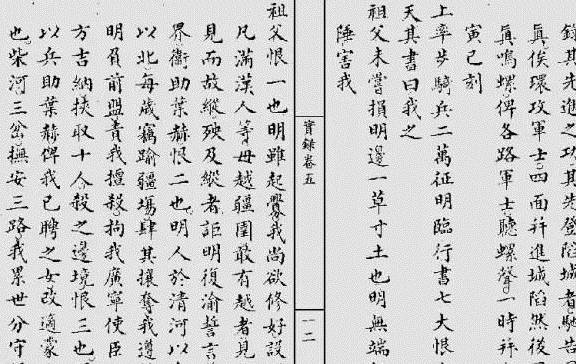 錄其先進之功其先登陷城者馳告
眞俟環攻軍士四面幷進城陷然後
眞鳴螺俾各路軍士聽螺聲一時幷
寅巳刻
上率步騎兵二萬征明臨行書七大恨
天其書曰我之
祖父未嘗損明邊一草寸土也明無端
陲害我
實錄卷五
一二
祖父恨一也明雖起釁我尚欲修好設
凡滿漢人等毋越疆圉敢有越者見
見而故縱殃及縱者詎明復渝誓言
界衞助葉赫恨二也明人於清河以
以北每歲竊踰疆場肆其攘奪我遵
明負前盟責我擅殺拘我廣寧使臣
方吉納挾取十人殺之邊境恨三也
以兵助葉赫俾我已聘之女改適蒙
也柴河三岔撫安三路我累世分守